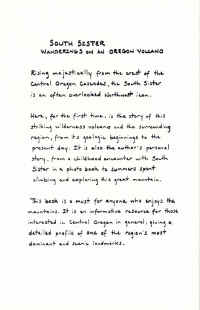 SOUTH SISTER
WANDERINGS ON AN OREGON VOLCANO
Rising majestically from the crest of the
Central Oregon Cascades, the South Sister
is an often overlooked Northwest icon.
Here, for the first time, is the story of this
striking wilderness volcano and the surrounding
region, from its geologic beginnings to the
present day. It is also the author's personal
story, from a childhood encounter with South
Sister in a photo book to summers spent
climbing and exploring this great mountain.
This book is a must for anyone who enjoys the
mountains. It is an informative resource for those
interested in Central Oregon in general, giving a
detailed profile of one of the region's most
dominant and scenic landmarks.